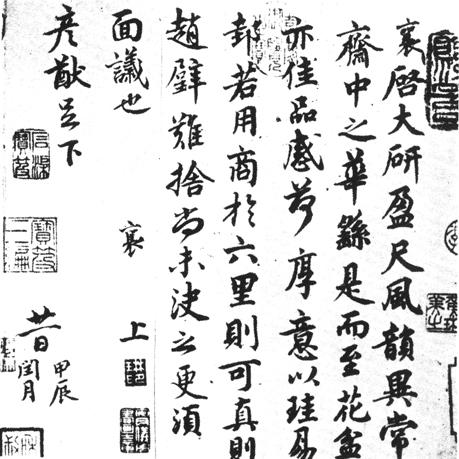 襄啓大研盈尺風韻異常
齋中之華繇是而至花盆
亦佳品感荷厚意以珪易
邽若用商於六里則可真則
趙璧難捨尚未決之更須
面議也 襄 上
彥猷足下
廿一日 甲辰
閏月
寶笈
三編